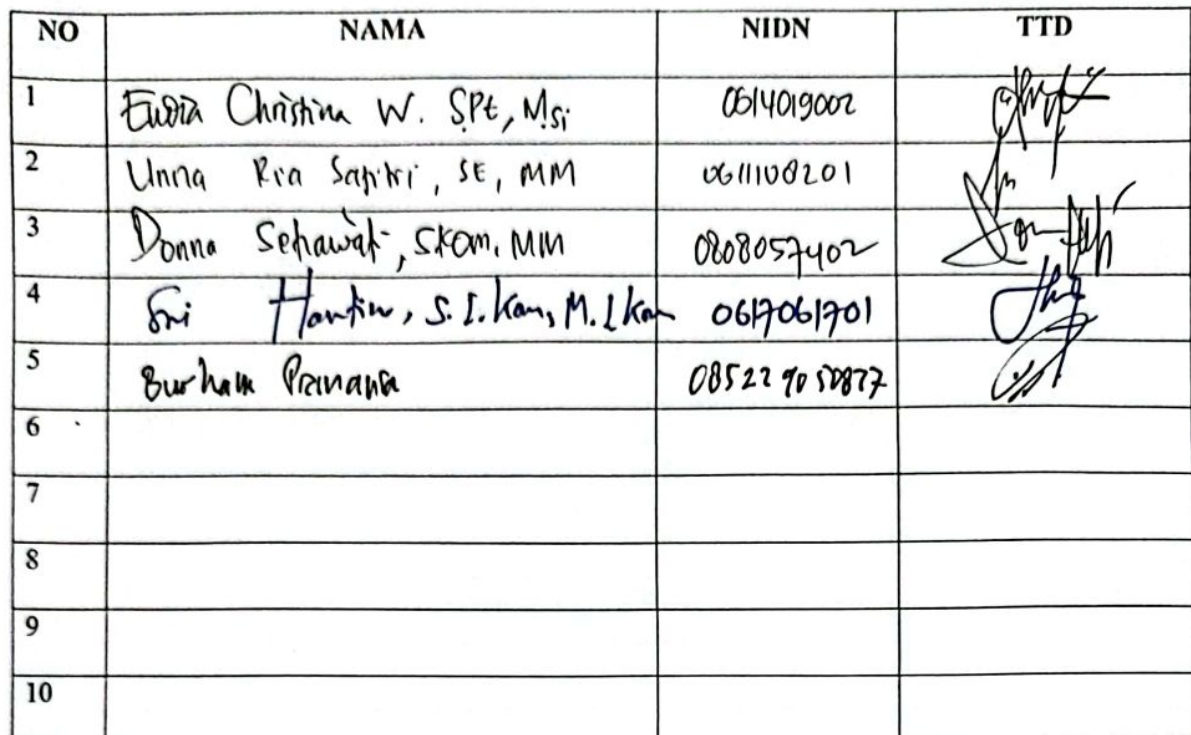 NO NAMA NIDN TTD
1 Christina W. SPt, MSi 0614019002
2 Unna Ria Sapitri, SE, MM 0611108201
3 Donna Setiawati, SKom, MM 0808057402
4 Sri S.I.Kom, M.I.Kom 0617061701
5 Burham Pranana
6
7
8
9
10